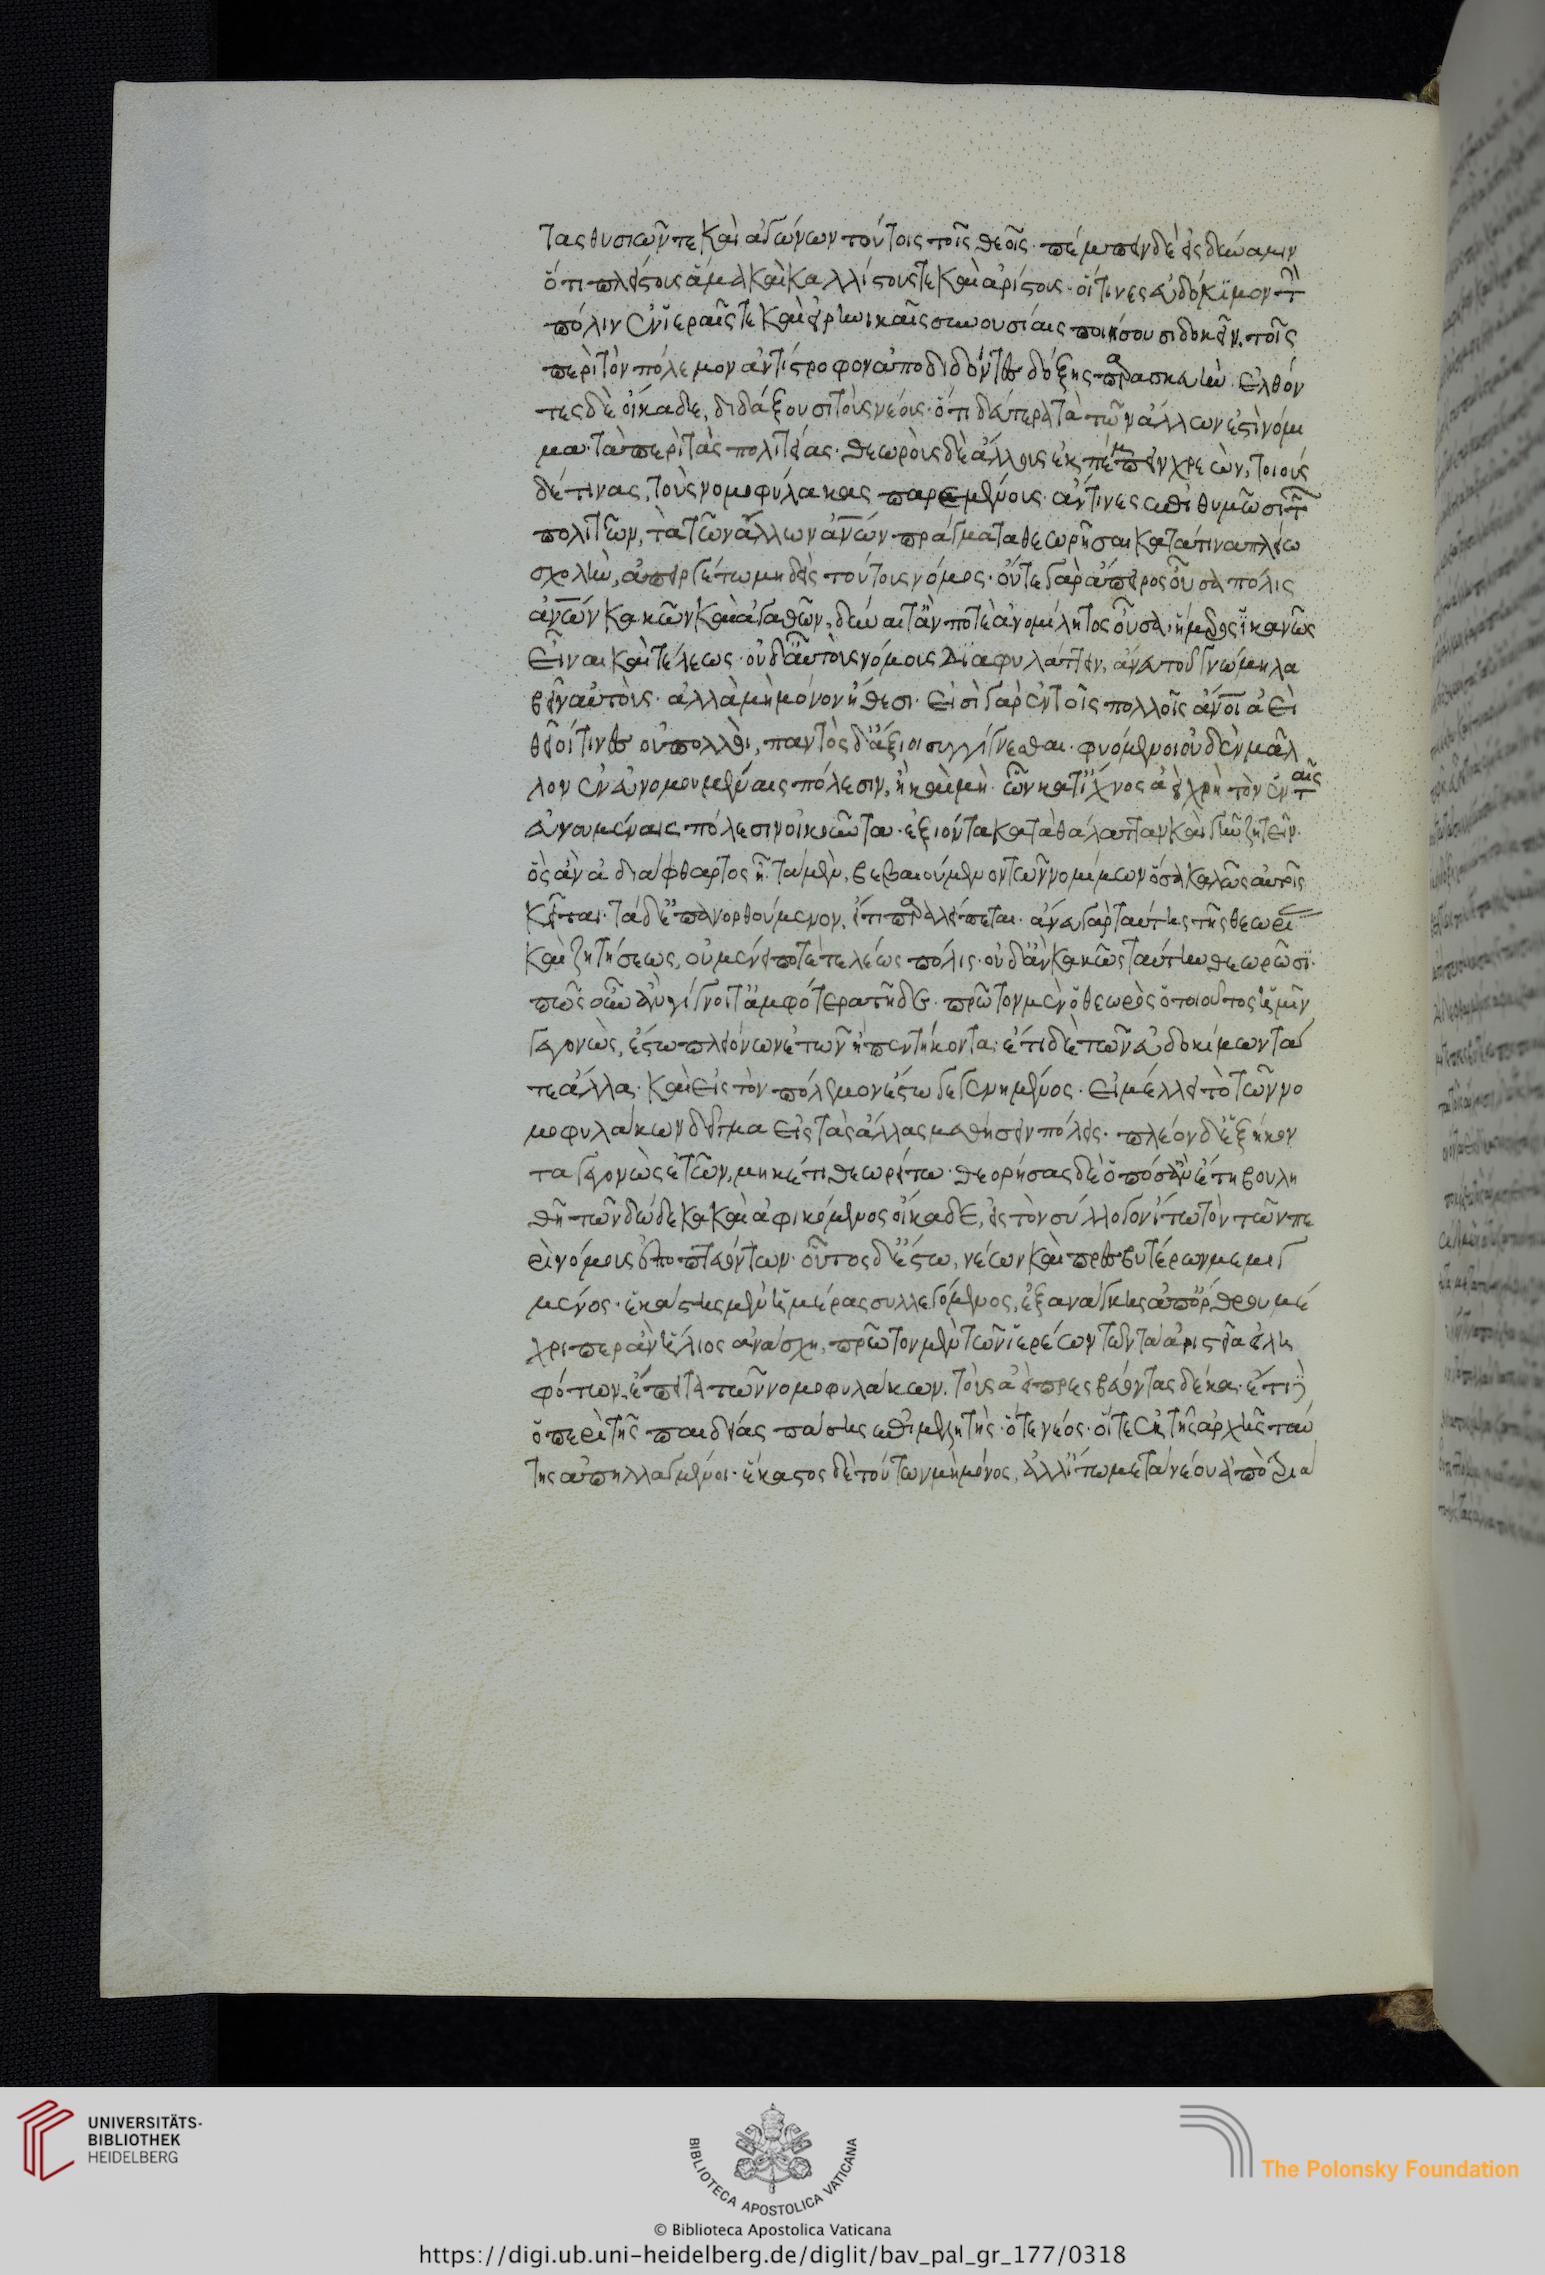 τας θυσιῶν τε καὶ ἀγώνων τούτοις τοῖς θεοῖς. πέμπειν δὲ εἰς δύναμιν
ὅτι πλείστους ἅμα καὶ καλλίστους τε καὶ ἀρίστους. οἵτινες εὐδόκιμον τὴν
πόλιν ἐν ἱεραῖς τε καὶ εἰρηνικαῖς συνουσίαις ποιήσουσι δοκεῖν. τοῖς
περὶ τὸν πόλεμον ἀντίστροφον ἀποδιδόντες δόξης παρασκευήν. ἐλθόν
τες δὲ οἴκαδε, διδάξουσι τοὺς νέους. ὅτι δεύτερα τὰ τῶν ἄλλων ἐστὶ νόμι
μα. τὰ περὶ τὰς πολιτείας. θεωροὺς δὲ ἄλλους ἐκπέμπειν χρεὼν, τοιούς
δέ τινας, τοὺς νομοφύλακας παρεμένους. ἄν τινες ἐπιθυμῶσι τῶν
πολιτῶν, τὰ τῶν ἄλλων ἀνῶν πράγματα θεωρῆσαι κατά τινα πλείω
σχολὴν, ἀπειργέτω μηδεὶς τούτους νόμος. οὔτε γὰρ ἄπειρος οὖσα πόλις
ἀνῶν κακῶν καὶ ἀγαθῶν, δύναιτ' ἄν ποτε ἀνομίλητος οὖσα, ἥμερος ἱκανῶς
εἶναι καὶ τέλεως. οὐδ' αὖ τοὺς νόμους διαφυλάττειν, ἄνευ τοῦ γνώμῃ λα
βεῖν αὐτοὺς. ἀλλὰ μὴ μόνον ἤθεσι. εἰσὶ γὰρ ἐν τοῖς πολλοῖς ἄνοι ἀεὶ
θεῖοί τινες οὐ πολλοὶ, παντὸς δ' ἄξιοι συγγίγνεσθαι. φυόμενοι οὐδὲν μᾶλ
λον ἐν εὐνομουμέναις πόλεσιν, ἢ καὶ μὴ. ὧν κατ' ἴχνος ἀεὶ χρὴ τὸν ἐν ταῖς
εὐνομουμέναις πόλεσιν οἰκοῦντα. ἐξιόντα κατὰ θάλατταν καὶ γῆν ζητεῖν.
ὃς ἂν ἀδιάφθαρτος ᾖ. τὰ μὲν, βεβαιούμενον τῶν νομίμων ὅσα καλῶς αὐτοῖς
κεῖται. τὰ δὲ ἐπανορθούμενον. εἴ τι παραλείπεται. ἄνευ γὰρ ταύτης τῆς θεωρί
καὶ ζητήσεως, οὐ μένει ποτὲ τελέως πόλις. οὐδ' ἂν κακῶς ταύτην θεωρῶσι.
πῶς οὖν ἂν γίγνοιτ' ἀμφότερα τῇδε. πρῶτον μὲν ὁ θεωρὸς ὁ τοιοῦτος ἡμῖν
γεγονὼς, ἔστω πλειόνων ἐτῶν ἢ πεντήκοντα. ἔτι δὲ τῶν εὐδοκίμων τά
τε ἄλλα. καὶ εἰς τὸν πόλεμον ἔστω γεγενημένος. εἰ μέλλει τὸ τῶν νο
μοφυλάκων δεῖγμα εἰς τὰς ἄλλας μεθήσειν πόλεις. πλέον δὲ ἑξήκον
τα γεγονὼς ἐτῶν, μηκέτι θεωρείτω. θεορήσας δὲ ὁπόσα ἂν ἔτη βουλη
θῇ τῶν δώδεκα καὶ ἀφικόμενος οἴκαδε, εἰς τὸν σύλλογον ἴτω τὸν τῶν πε
ρὶ νόμους ἐποπτευόντων. οὗτος δ' ἔστω, νέων καὶ πρεσβυτέρων μεμιγ
μένος. ἑκάστης μὲν ἡμέρας συλλεγόμενος, ἐξ ἀνάγκης ἀπ' ὄρθρου μέ
χρι περ ἂν ἥλιος ἀνάσχῃ. πρῶτον μὲν τῶν ἱερέων τῶν τὰ ἀριστεῖα εἰλη
φότων. ἔπειτα τῶν νομοφυλάκων. τοὺς ἀεὶ πρεσβεύοντας δέκα. ἔτι δὲ
ὁ περὶ τῆς παιδείας πάσης ἐπιμελητὴς. ὅ τε νέος. οἵ τε ἐκ τῆς ἀρχῆς ταύ
της ἀπηλλαγμένοι. ἕκαστος δὲ τούτων μὴ μόνος, ἀλλ' ἴτω μετὰ νέου ἀπὸ τριά
UNIVERSITÄTS-
BIBLIOTHEK
HEIDELBERG
BIBLIOTECA APOSTOLICA VATICANA
© Biblioteca Apostolica Vaticana
The Polonsky Foundation
https://digi.ub.uni-heidelberg.de/diglit/bav_pal_gr_177/0318